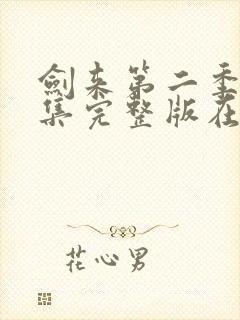 剑来第二季
集完整版在
花心男